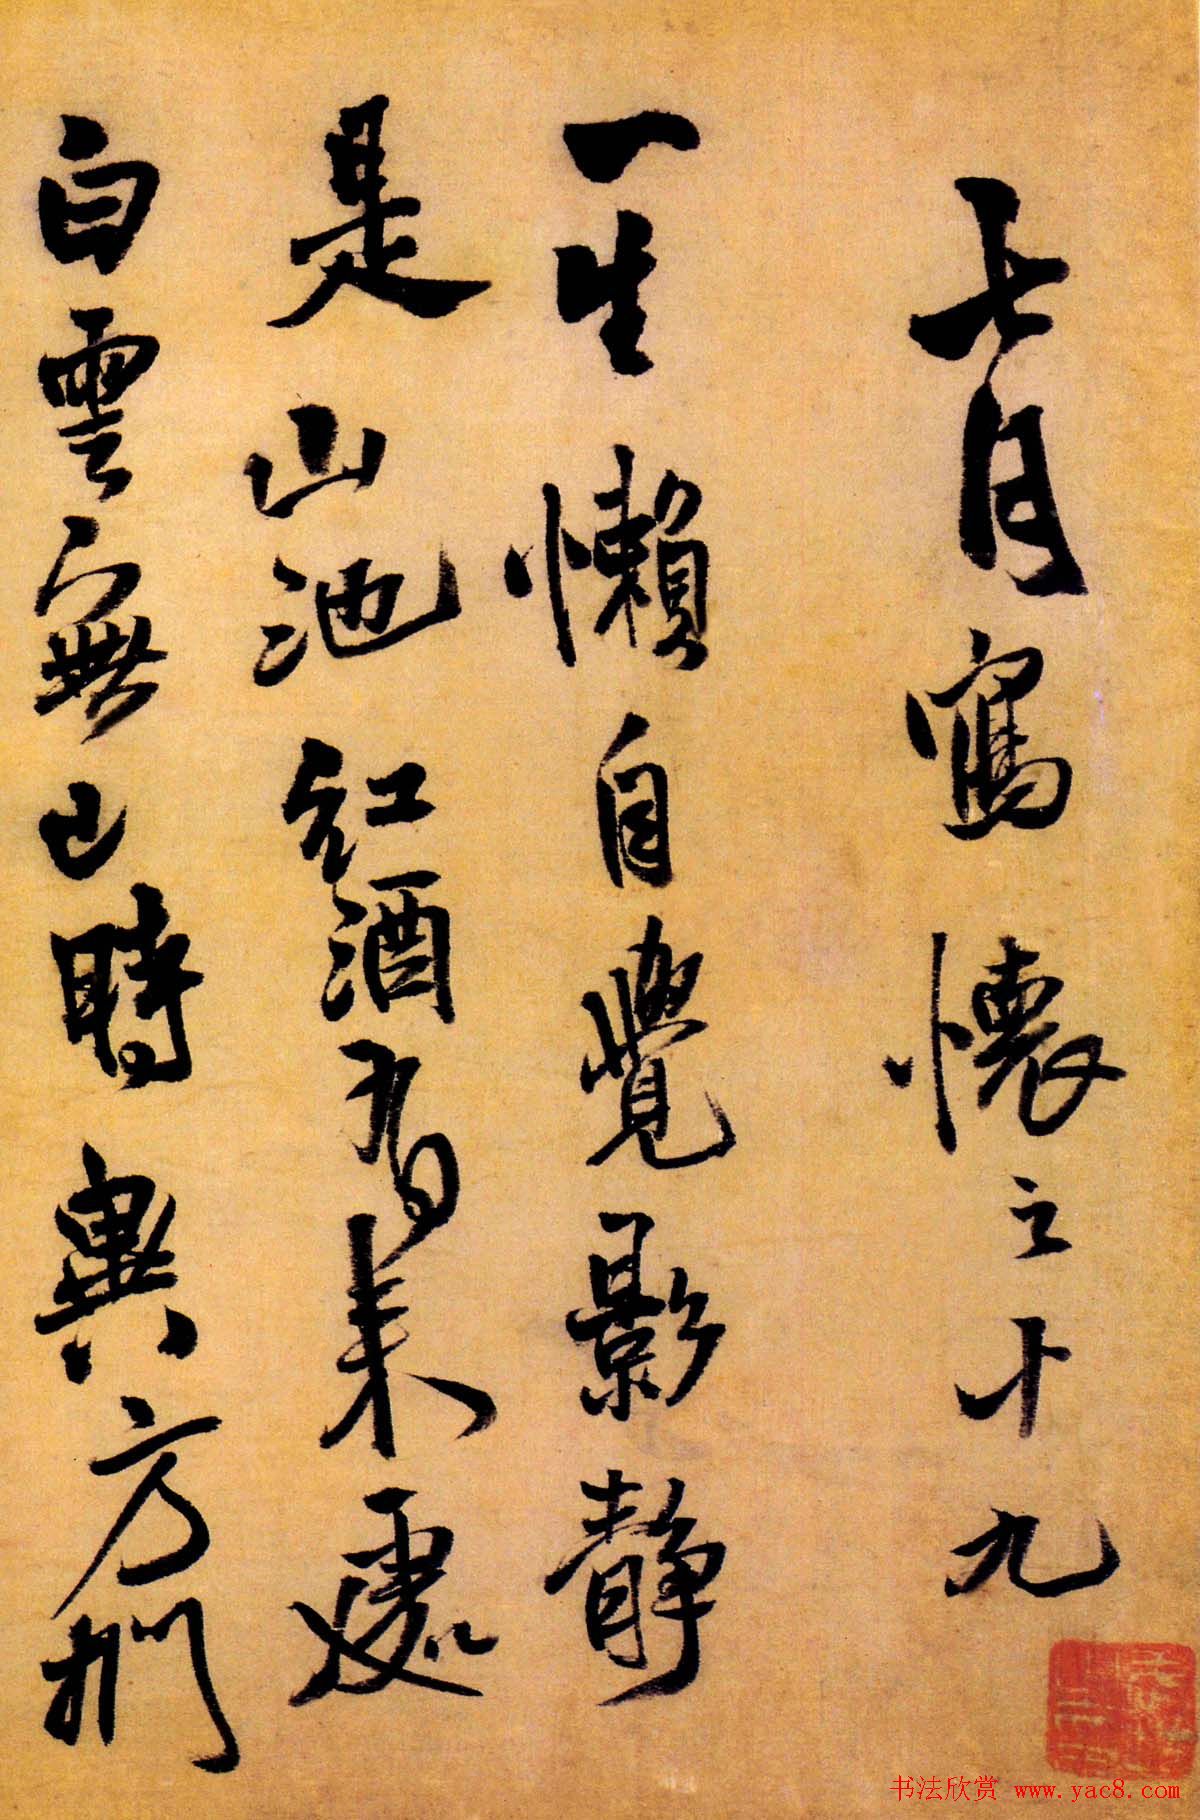 七月寫懷之十九
一生懶自覺影静
是山池紅酒有来處
白雲無已時與方
书法欣赏 www.yac8.com